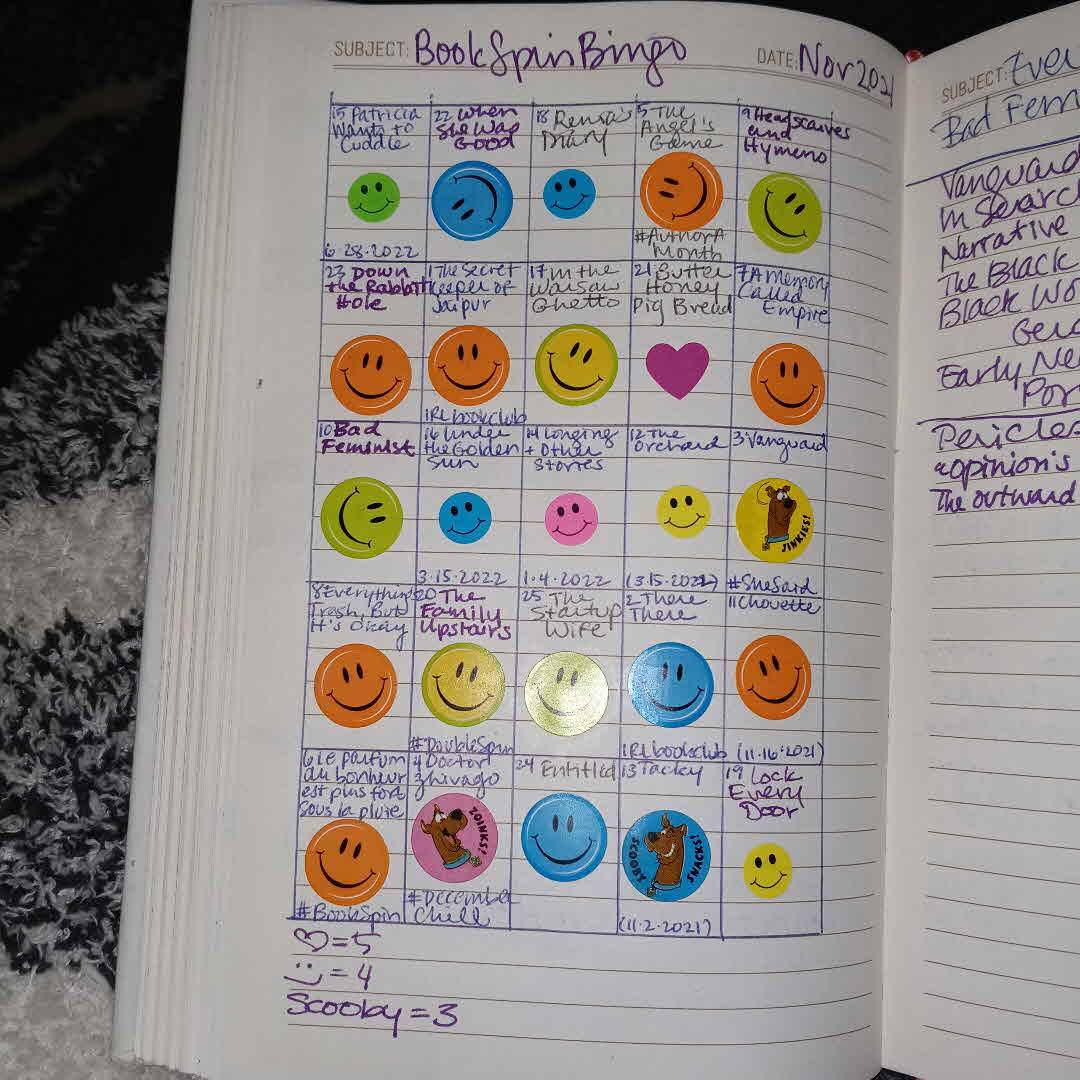 SUBJECT: BookSpinBingo DATE: Nov 2021
15 Patricia
Wants to
Cuddle
6·28·2022
22 When
She Was
Good
18 Renia's
Diary
5 The
Angel's
Game
#AuthorA
Month
9 Headscarves
and
Hymens
23 Down
the Rabbit
Hole
1 The Secret
Keeper of
Jaipur
IRL bookclub
17 in the
Warsaw
Ghetto
21 Butter
Honey
Pig Bread
7 A Memory
Called
Empire
10 Bad
Feminist
16 Under
the Golden
Sun
3·15·2022
14 Longing
+ Other
Stories
1·4·2022
12 The
Orchard
(3·15·2022)
3 Vanguard
JINKIES!
#SheSaid
8 Everything's
Trash, But
It's Okay
20 The
Family
Upstairs
#DoubleSpin
25 The
Startup
Wife
2 There
There
IRL bookclub
11 Chouette
(11·16·2021)
6 Le parfum
du bonheur
est plus fort
sous la pluie
#BookSpin
4 Doctor
Zhivago
ZOINKS!
#December
Chill
24 Entitled
13 Tacky
SCOOBY SNACKS!
(11·2·2021)
19 Lock
Every
Door
♡=5
=4
Scooby=3
SUBJECT:
Bad Fem
Vanguard
In Search
Narrative
The Black
Black Wo
Early Ne
Por
Pericles
opinion's
The outward